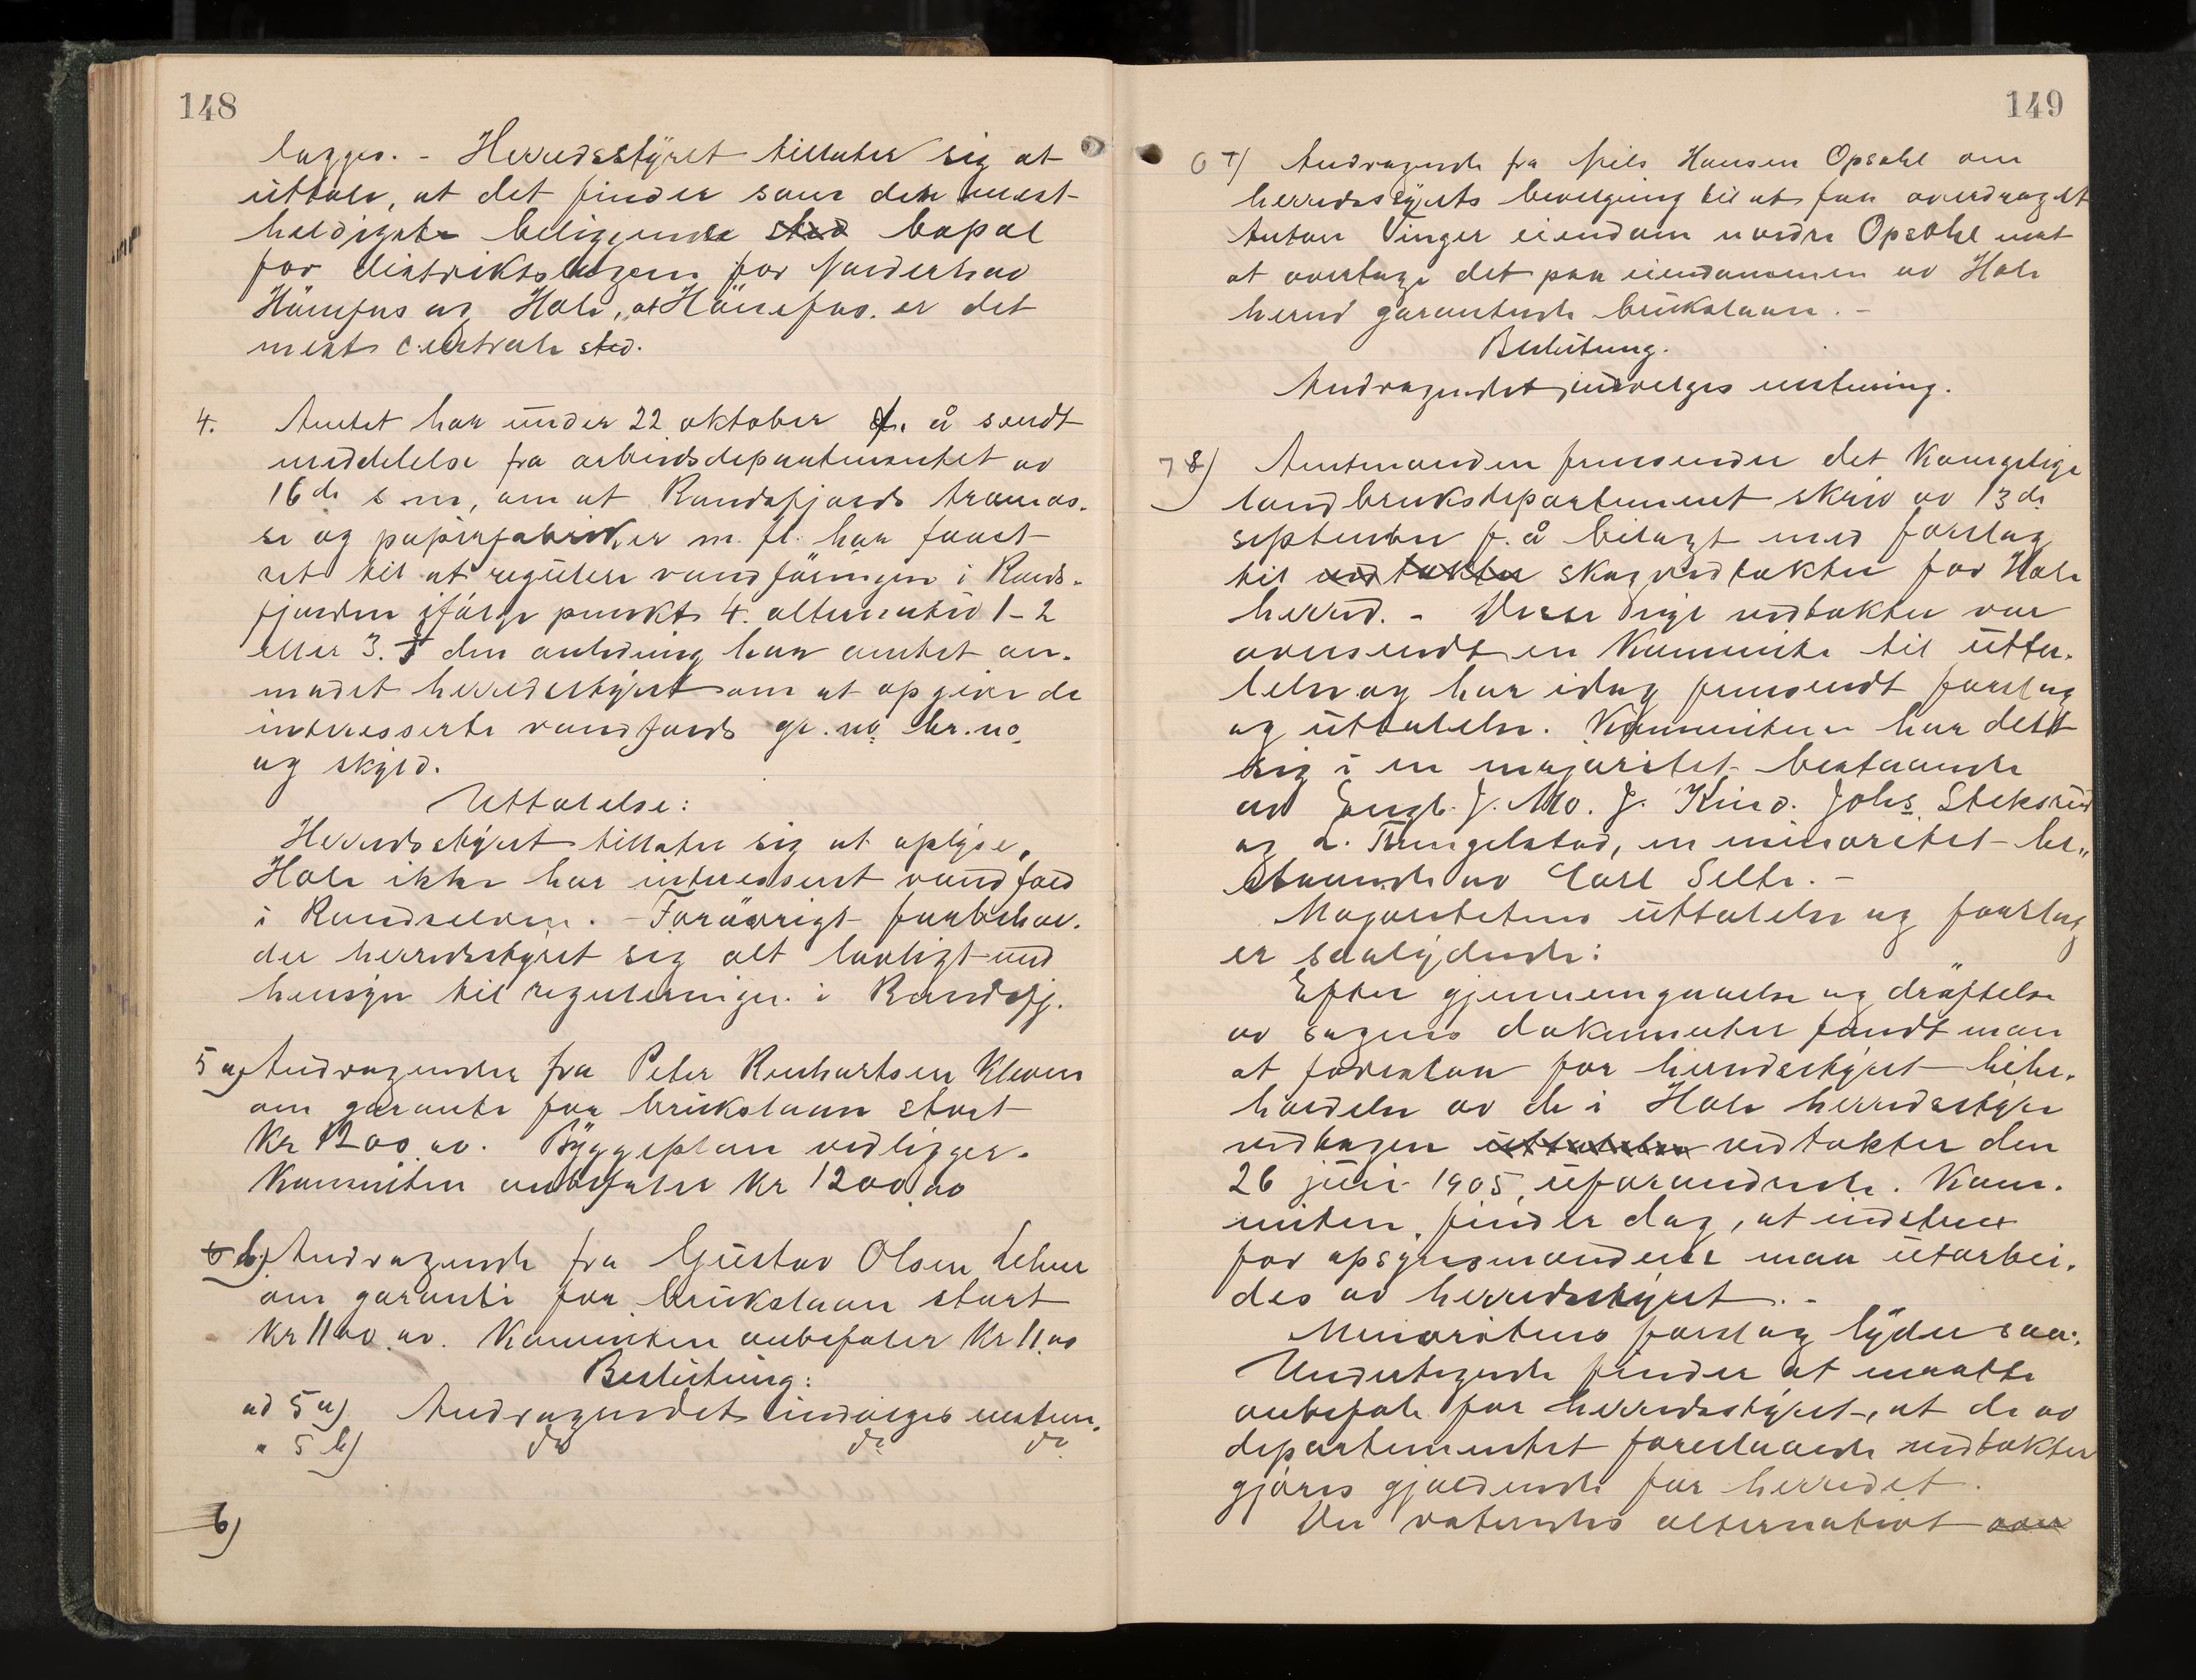 148
lægges. - Herredsstyret tillater sig at
üttale, at det finder som den mest
heldigste beliggende sted bopæl
for distriktslægen for Norderhov
Hönefos og Hole, at Hönefos. er det
mest centrale sted.
4. Amtet har ünder 22 oktober f. å sendt
meddelelse fra arbeidsdepartementet av
16de s m, om at Randsfjords træmas-
se og papirfabrikker m. fl. har søkt
ret til at regülere vandföringen i Rands-
fjorden ifölge punkt 4. alternativ 1-2
eller 3. I den anledning har amtet an-
modet herredsstyret om at opgive de
interesserte vandfalds gr. no br. no
og skyld.
Uttalelse:
Herredsstyret tillater sig at oplyse,
Hole ikke har interessert vandfald
i Randselven. - Forövrigt forbehol-
der herredsstyret sig alt lovligt med
hensyn til reguleringen i Randsfj.
5 a) Andragende fra Peter Renhartsen Kleven
om garanti for brükslaan stort
Kr 1200.00. Byggeplan vedligger.
Komiteen anbefaler Kr 1200.00
6 b) Andragende fra Gustav Olsen Lehne
om garanti for brükslaan stort
Kr 1100.00. Komiteen anbefaler Kr 11.00
Beslütning:
ad 5 a) Andragendet indvilges enstem.
" 5 b) do do do
6)
149
6 7) Andragende fra Nils Hansen Opsahl om
herredsstyrets bevilgning til at faa overdraget
Anton Vinger eiendom nordre Opsahl mot
at overtage det paa eiendommen av Hole
herred garanterte brükslaan. -
Beslütning.
Andragendet indvilges enstemmig.
7 8) Amtmanden fremsender det Kongelige
landbruksdepartement skriv av 13de
september f. å bilagt med forslag
til vedtækter skogvedtækter for Hole
herred. - Disse vedtækter var
oversendt en Kommite til ütta-
lelse og har idag fremsendt forslag
og üttalelse. Kommiteen har delt
sig i en majoritet bestaaende
av Engb. J. Mo. J. Kind. Johs Steksrud
og L. Tringelstad, en minoritet be-
staaende av Carl Selte. -
Majoritetens üttalelse og forslag
er saalydende:
Efter gjennemgaaelse og dröftelse
av sagens dokumenter fandt man
at foreslaa for herredsstyret bibe-
holdelse av de i Hole herredsstyre
vedtagen üttalelse vedtækter den
26 jüni 1905, üforandrede. Kom-
miteen finder dog, at instrux
for opsynsmændene maa ütarbei-
des av herredsstyret. -
Minoritetens forslag lyder saa:
Undertegnede finder at maatte
anbefale for herredsstyret, at de av
departementet foreslaaede vedtækter
gjöres gjældende for herredet.
Der voteredes alternativt over